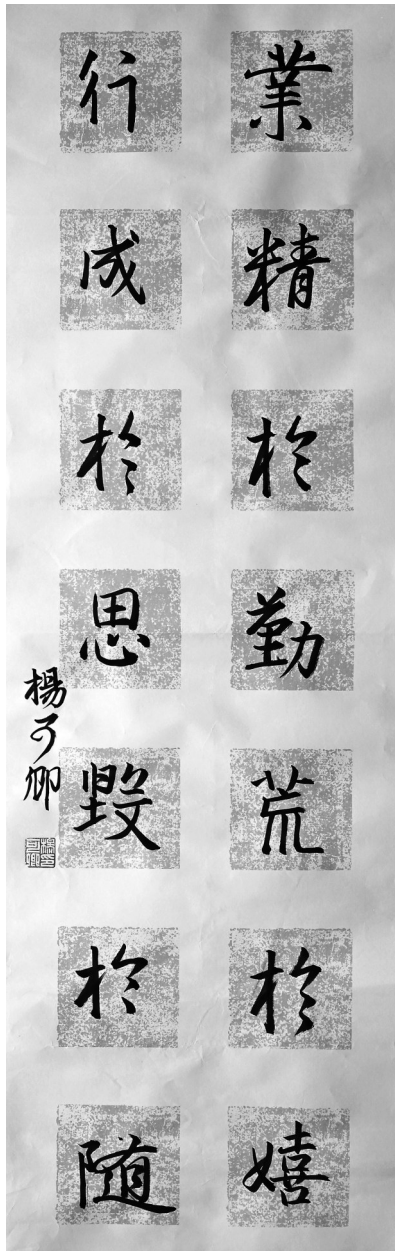 業精於勤荒於嬉
行成於思毀於隨
楊可卿